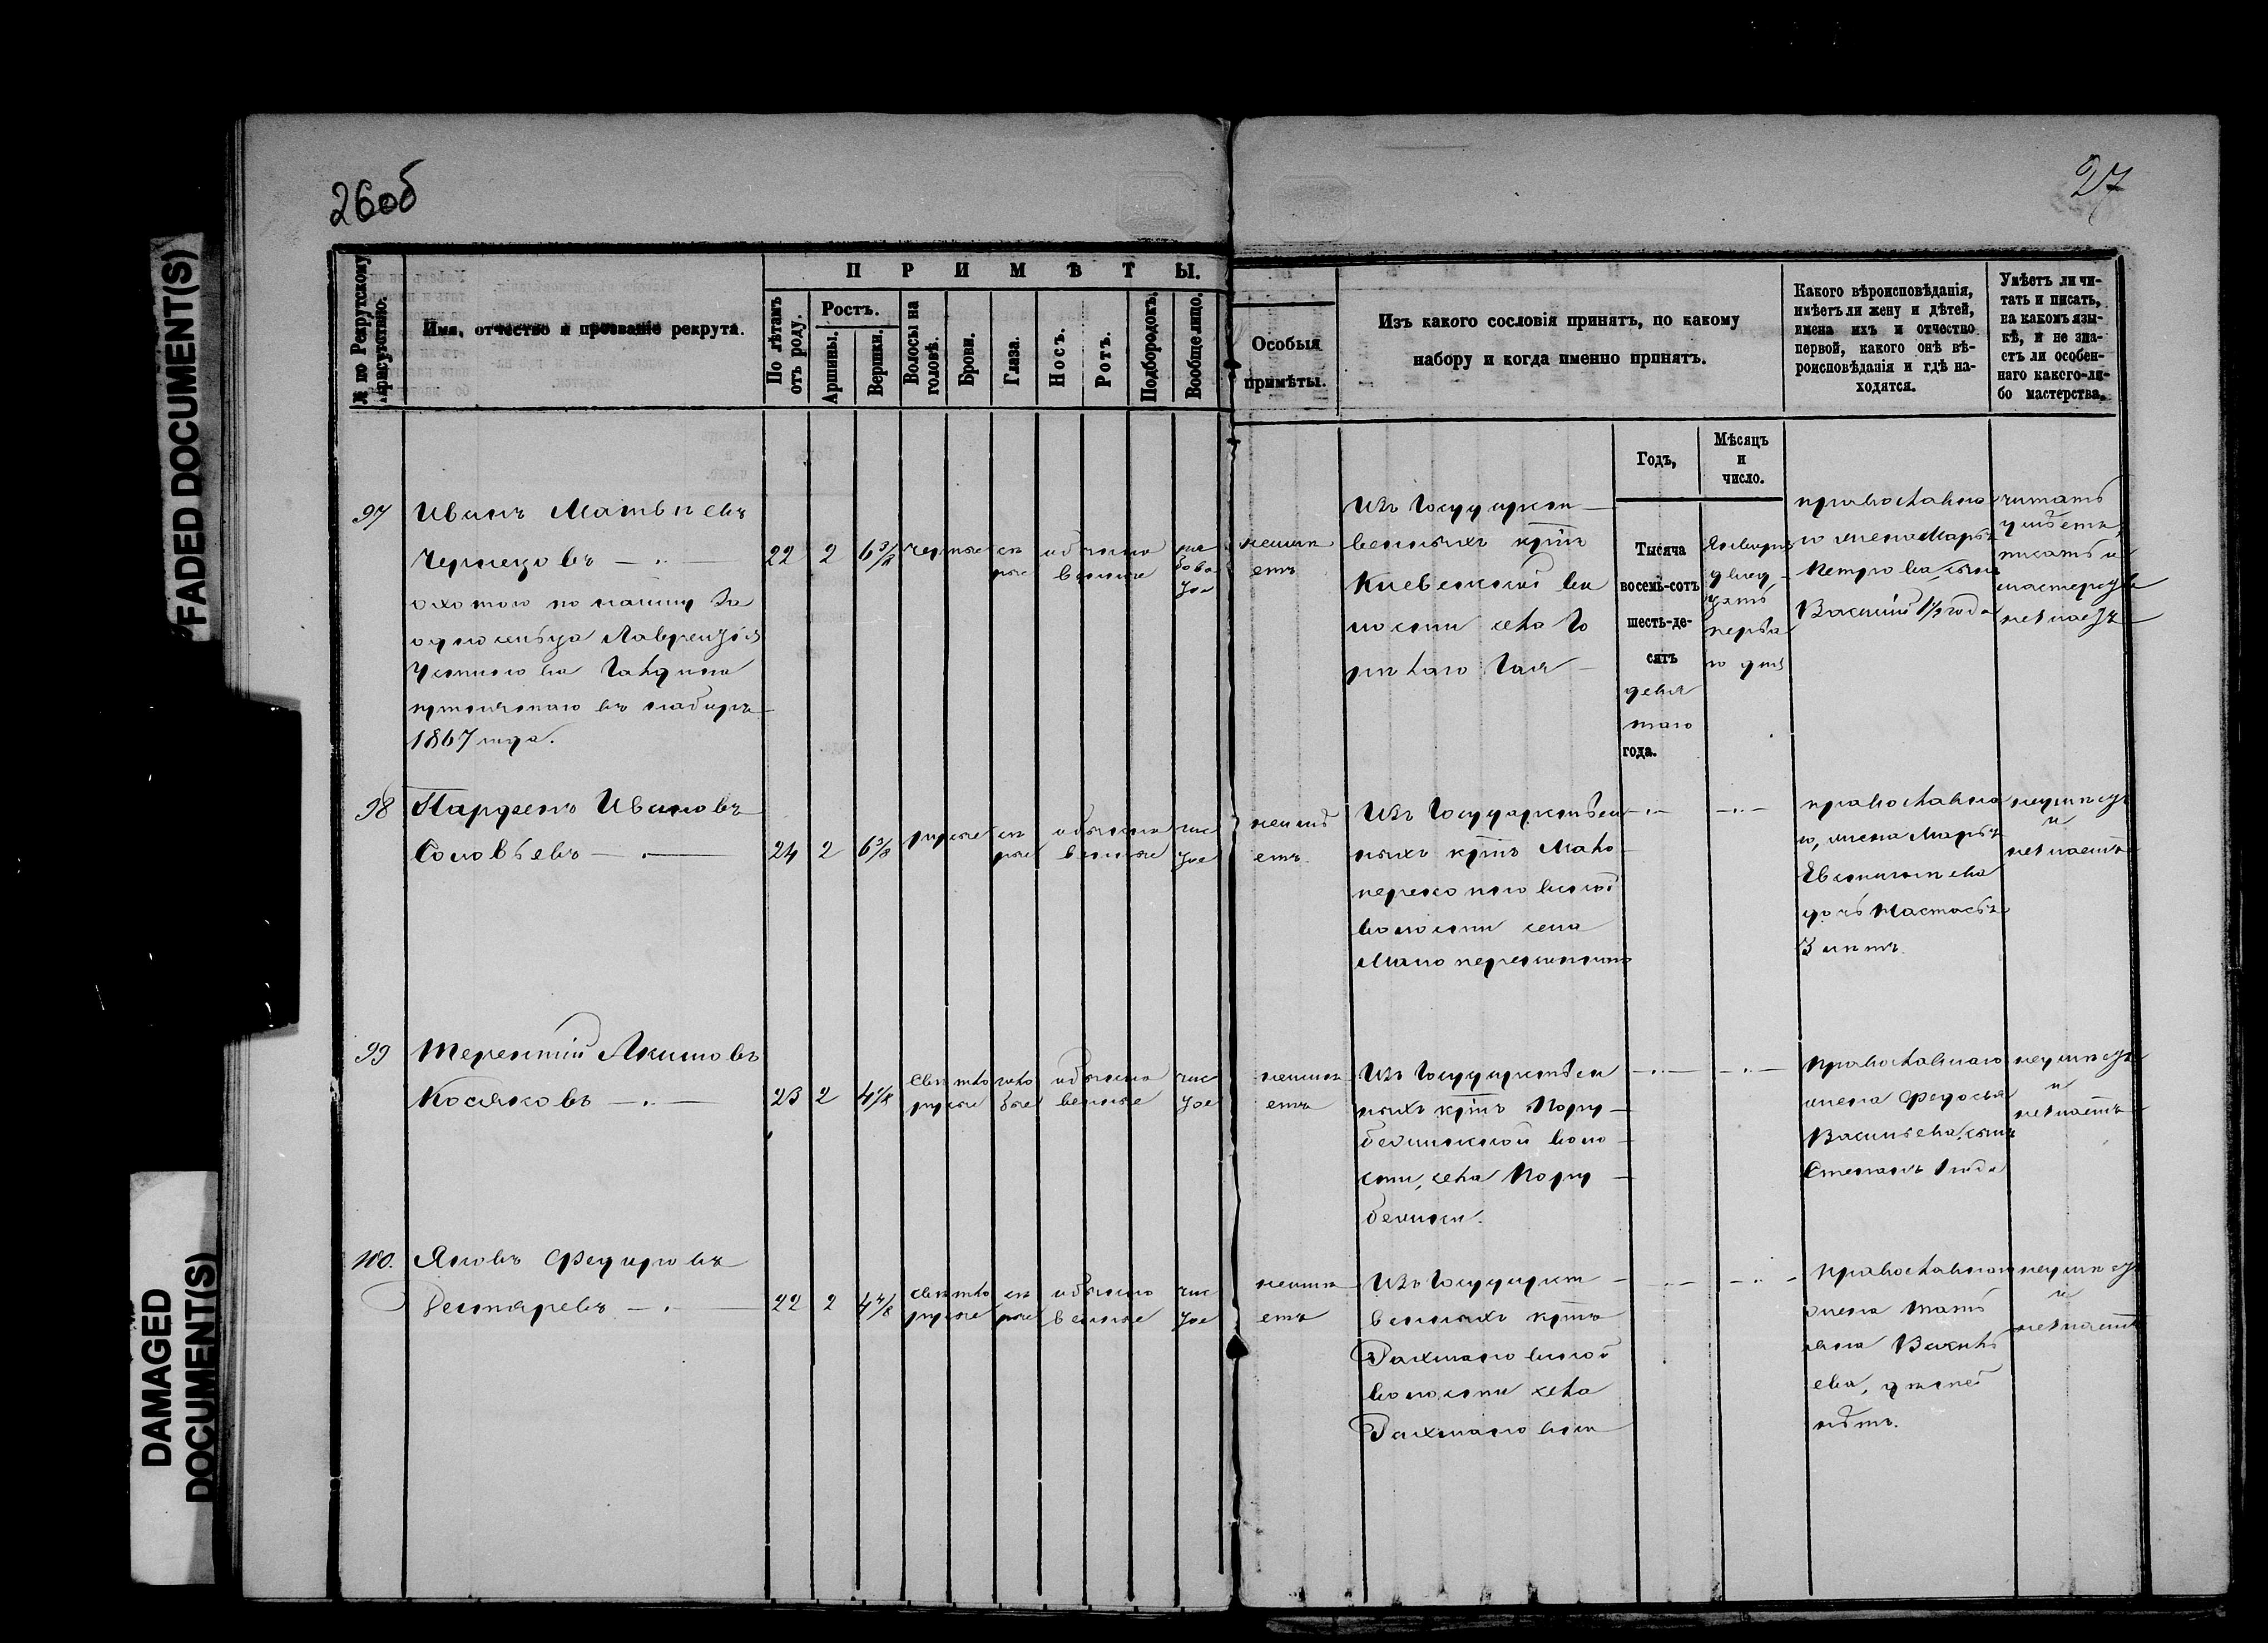 26об
27
FADED DOCUMENT(S)
DAMAGED
DOCUMENT(S)
№ по Рекрутскому
присутствію.
Имя, отчество и прозваніе рекрута.
ПРИМѢТЫ.
По лѣтамъ
отъ роду.
Ростъ.
Аршины.
Вершки.
Волосы на
головѣ.
Брови.
Глаза.
Носъ.
Ротъ.
Подбородокъ.
Вообще лицо.
Особыя
примѣты.
Изъ какого сословія принятъ, по какому
набору и когда именно принятъ.
Какого вѣроисповѣданія,
имѣетъ ли жену и дѣтей,
имена ихъ и отчество
первой, какого онѣ вѣ-
роисповѣданія и гдѣ на-
ходятся.
Умѣетъ ли чи-
тать и писать,
на какомъ язы-
кѣ, и не зна-
етъ ли особен-
наго какого-ли-
бо мастерства.
Годъ,
Мѣсяцъ
и
число.
97
Иванъ Матвѣевъ
Чернецовъ
охотою по найму за
односельца Лаврентія
принятаго въ наборъ
1867 года.
22
2
6 3/8
черные
сѣ
рые
обыкно
венные
неимѣ
етъ
Изъ Государст
венныхъ крт͠ъ
Кіевской во
лости села Го
рѣлаго
Тысяча
восемь-сотъ
шесть-де-
сятъ
девя
таго
года.
Января
двад
цать
перва
го дня
православна
го жена Марья
Петрова, сынъ
Василій 1/2 года
читать
умѣетъ,
писать и
мастерства
незнаетъ
98
Парфенъ Ивановъ
Соловьевъ
24
2
6 3/8
русые
сѣ
рые
обыкно
венные
чис
тое
неимѣ
етъ
Изъ Государствен
ныхъ крт͠ъ Мало
волости села
православна
го, жена Марья
Евстигнѣева
дочь Настасья
3 лѣтъ
неумѣетъ
и
незнаетъ
99
Терентій Акимовъ
Косяковъ
23
2
4 7/8
свѣтло
русые
голу
бые
обыкно
венные
чис
тое
неимѣ
етъ
Изъ Государствен
ныхъ крт͠ъ Пору
бежской воло
сти, села Пору
бежки.
православнаго
жена Федосья
Васильева, сынъ
Степанъ 1 года
неумѣетъ
и
незнаетъ
100.
Яковъ Федоровъ
Дегтяревъ
22
2
4 4/8
свѣтло
русые
сѣ
рые
обыкно
венные
чис
тое
неимѣ
етъ
Изъ Государст
венныхъ крт͠ъ
Рахмановской
волости села
Рахмановки
православнаго
жена Тать
яна
ева, дѣтей
нѣтъ.
неумѣетъ
и
незнаетъ